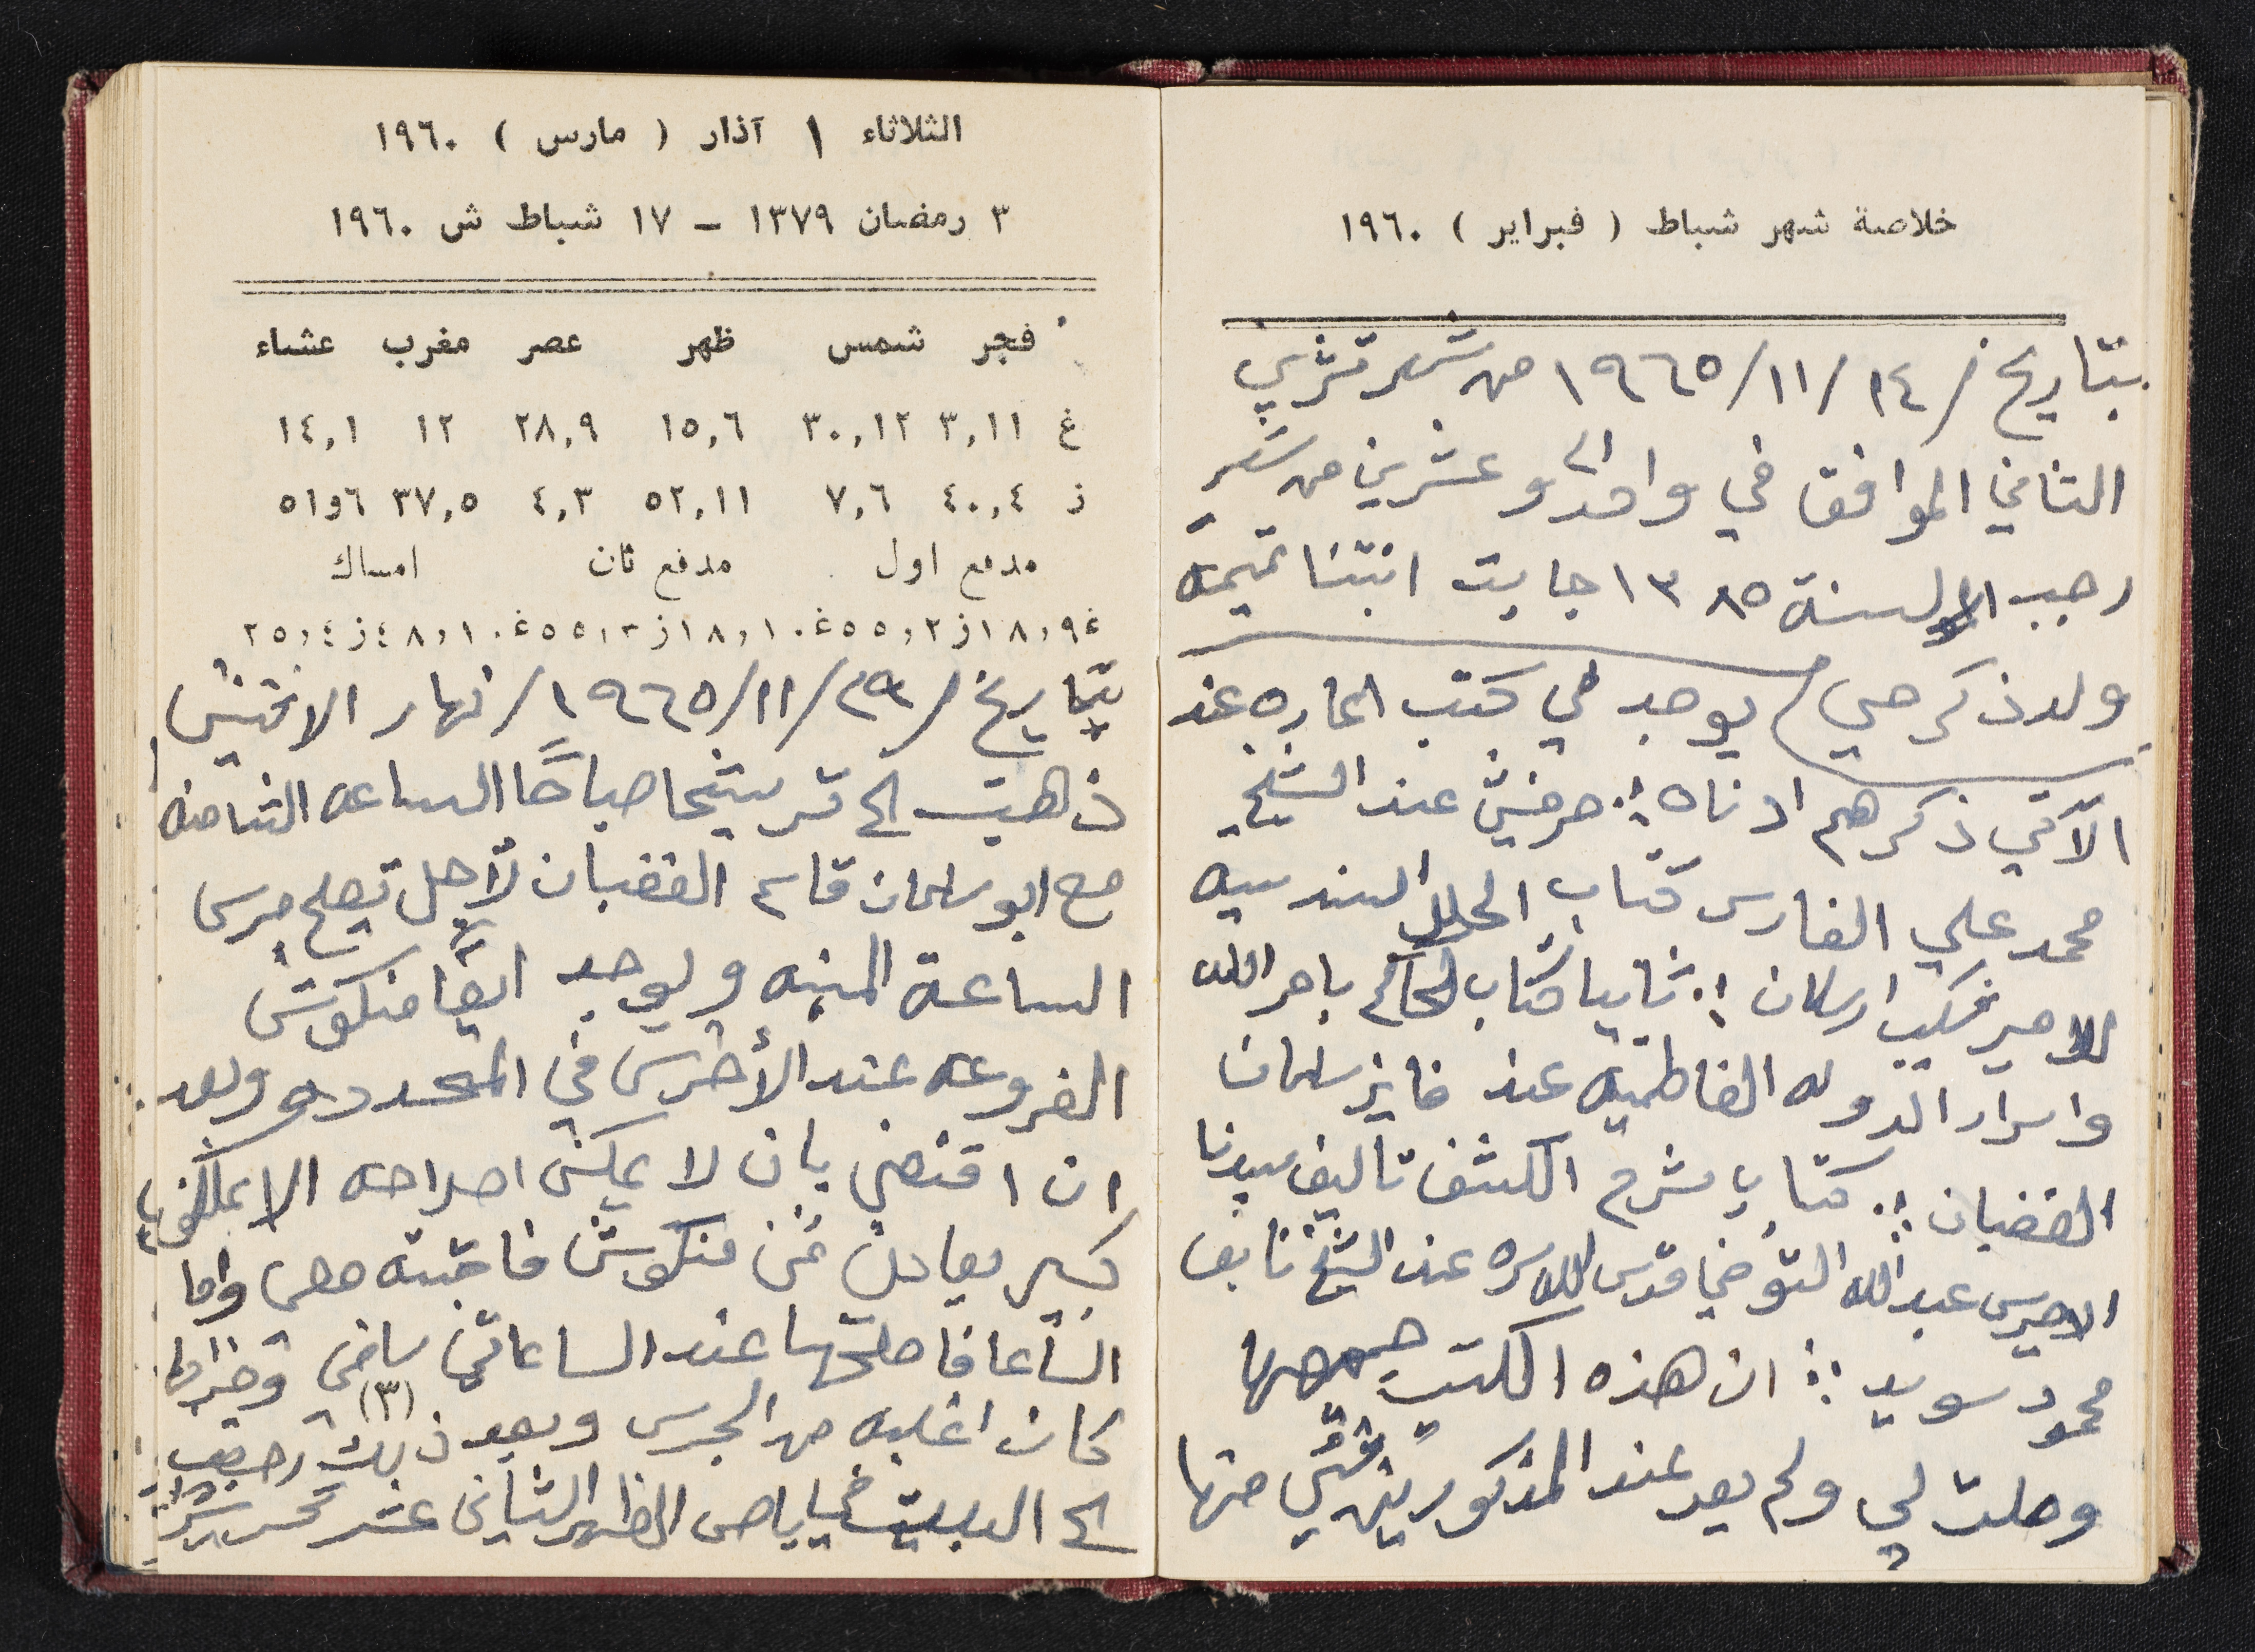 خلاصة شهر شباط ( فبراير ) ١٩٦٠
بتاريخ / ١٤ / ١١ / ١٩٦٥ من شهر تشرين
الثاني الموافق في واحد وعشرين من شهر
رجب لسنة ١٣٨٥ جابت ابنتنا تميمه
ولد ذكر حي / يوجد لي كتب اعاره عند
الآتي ذكرهم ادناه : عند الشيخ
محمد علي الفارس كتاب الحلل السندسيه
للامير شكيب ارسلان : ثانيا كتاب الحاكم بامر الله
واسرار الدوله الفاطميه عند فايز سلمان
القضبان : كتاب شرح الكشف تأليف سيدنا
الامير عبدالله التنوخي قدس الله سره عند الشيخ نايف
محمود سويد : ان هذه الكتب جميعها
وصلت لي ولم يعد عند المذكورين شي منها
الثلاثاء ١ آذار ( مارس ) ١٩٦٠
٣ رمضان ١٣٧٩ - ١٧ شباط ش ١٩٦٠
فجر شمس ظهر عصر مغرب عشاء
غ ٣,١١ ٣٠,١٢ ١٥,٦ ٢٨,٩ ١٢ ١٤,١
ز ٤٠,٤ ٧,٦ ٥٢,١١ ٤,٣ ٣٧,٥ ٦و٥١
مدفع اول مدفع ثان امساك
غ ١٨,٩ ز ٥٥,٢ غ ١٨,١٠ ز ٥٥,٣ غ ٤٨,١٠ ز ٢٥,٤
بتاريخ / ٢٩ / ١١ / ١٩٦٥ / نهار الاثنين
ذهبت الى ترشيحا صباحًا الساعه الثامنه
مع ابو سلمان قاسم القضبان لأجل جرس
الساعة المنبه ويوجد ايضًا منكوش
الفروعه عند الأخرس في وبعد
ان اقتضى بان لا يمكن اصلاحه الا
كبير يعادل ثمن منكوش فاجبته معي واما
فاصلحتها عند الساعاتي
كان اغلبه من الجرس وبعد ذلك رجعت (٣)
الى البيت الظهر الثاني عشر